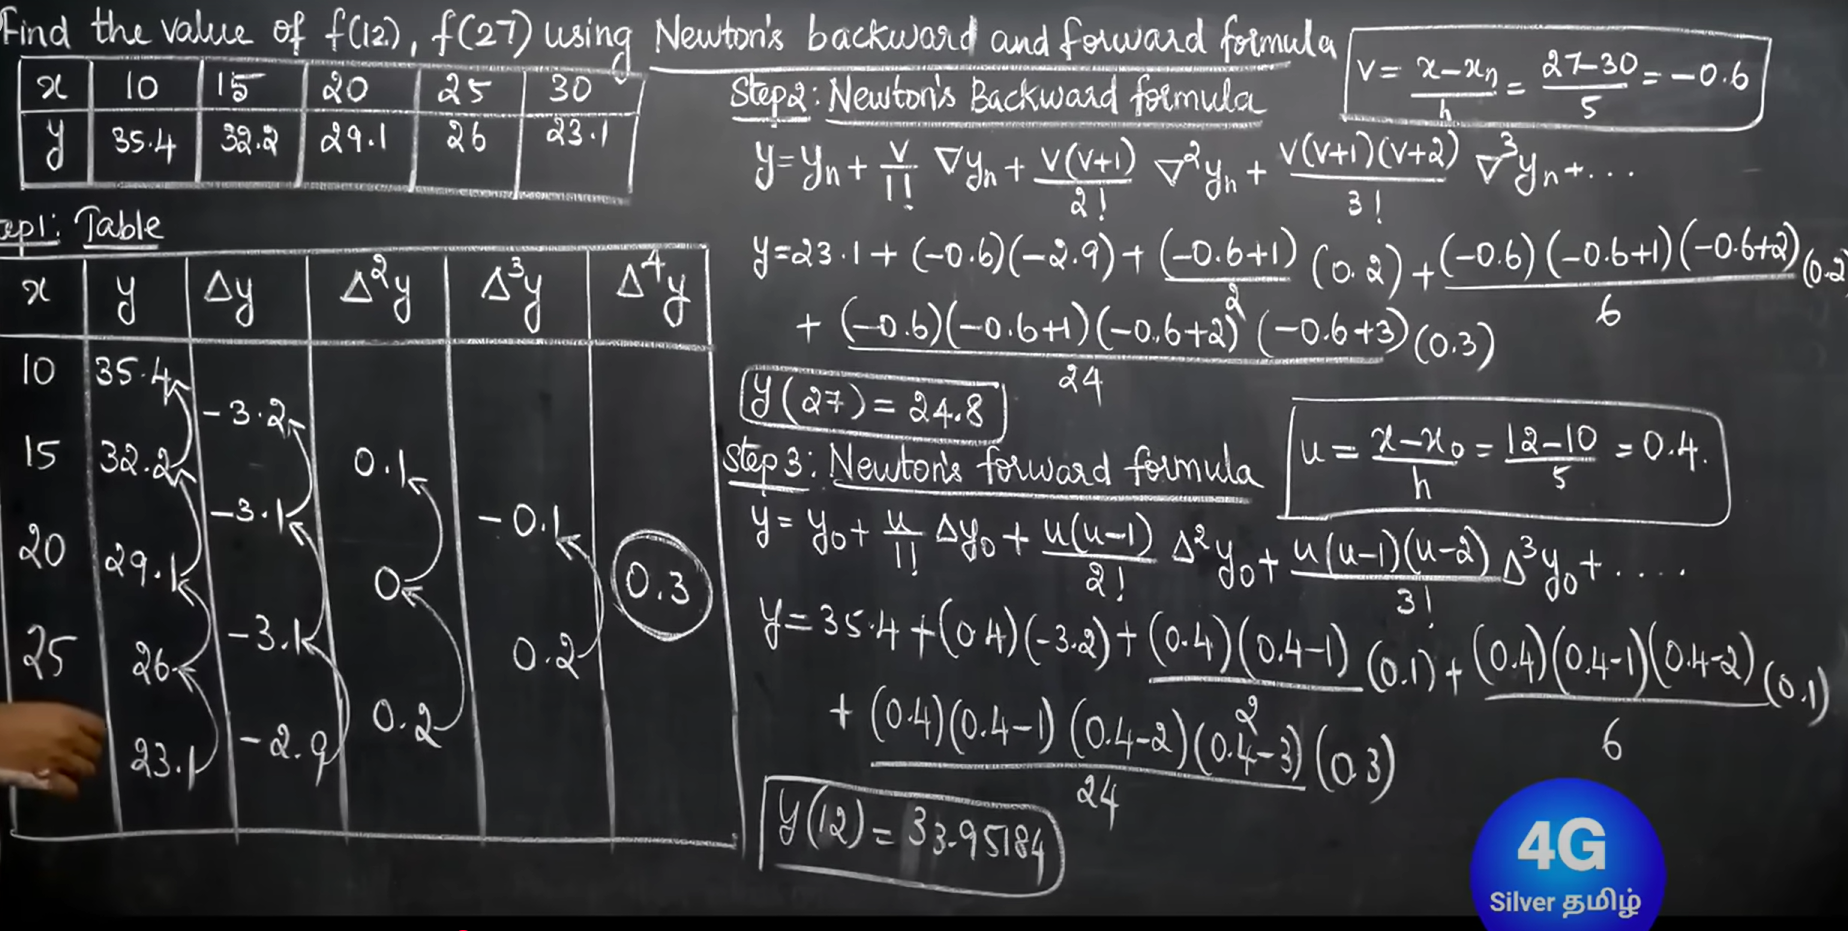 Find the value of f(12), f(27) using Newton's backward and forward formula
x 10 15 20 25 30
y 35.4 32.2 29.1 26 23.1
ep1: Table
x y Δy Δ²y Δ³y Δ⁴y
10 35.4
-3.2
15 32.2 0.1
-3.1 -0.1
20 29.1 0 0.3
-3.1 0.2
25 26 0.2
-2.9
23.1
Step2: Newton's Backward formula
v = (x-xₙ)/h = (27-30)/5 = -0.6
y = yₙ + v/1! ∇yₙ + v(v+1)/2! ∇²yₙ + v(v+1)(v+2)/3! ∇³yₙ + ...
y = 23.1 + (-0.6)(-2.9) + (-0.6+1)/2 (0.2) + (-0.6)(-0.6+1)(-0.6+2)/6 (0.2
+ (-0.6)(-0.6+1)(-0.6+2)(-0.6+3)/24 (0.3)
y(27) = 24.8
Step3: Newton's forward formula
u = (x-x₀)/h = (12-10)/5 = 0.4.
y = y₀ + u/1! Δy₀ + u(u-1)/2! Δ²y₀ + u(u-1)(u-2)/3! Δ³y₀ + ....
y = 35.4 + (0.4)(-3.2) + (0.4)(0.4-1)/2 (0.1) + (0.4)(0.4-1)(0.4-2)/6 (0.1)
+ (0.4)(0.4-1)(0.4-2)(0.4-3)/24 (0.3)
y(12) = 33.95184
4G
Silver தமிழ்